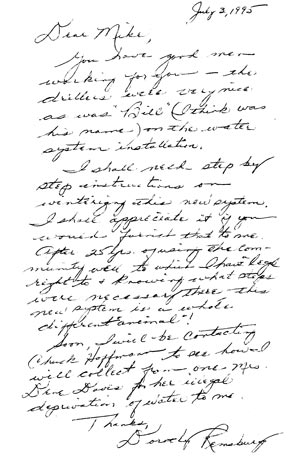 July 3, 1995
Dear Mike,
You have good men
working for you — the
drillers were very nice
as was "Bill" (I think was
his name) on the water
system installation.
I shall need step by
step instructions on
winterizing this new system.
I shall appreciate it if you
would furnish that to me.
After 25 yrs. of using the com-
munity well to which I have legal
right to & knowing what steps
were necessary there this
new system is a "whole
different animal"!
Soon, I will be contacting
Chuck Hoffman to see how I
will collect from one Mrs.
Davis for her illegal
deprivation of water to me.
Thanks,
Dorothy Remsburg